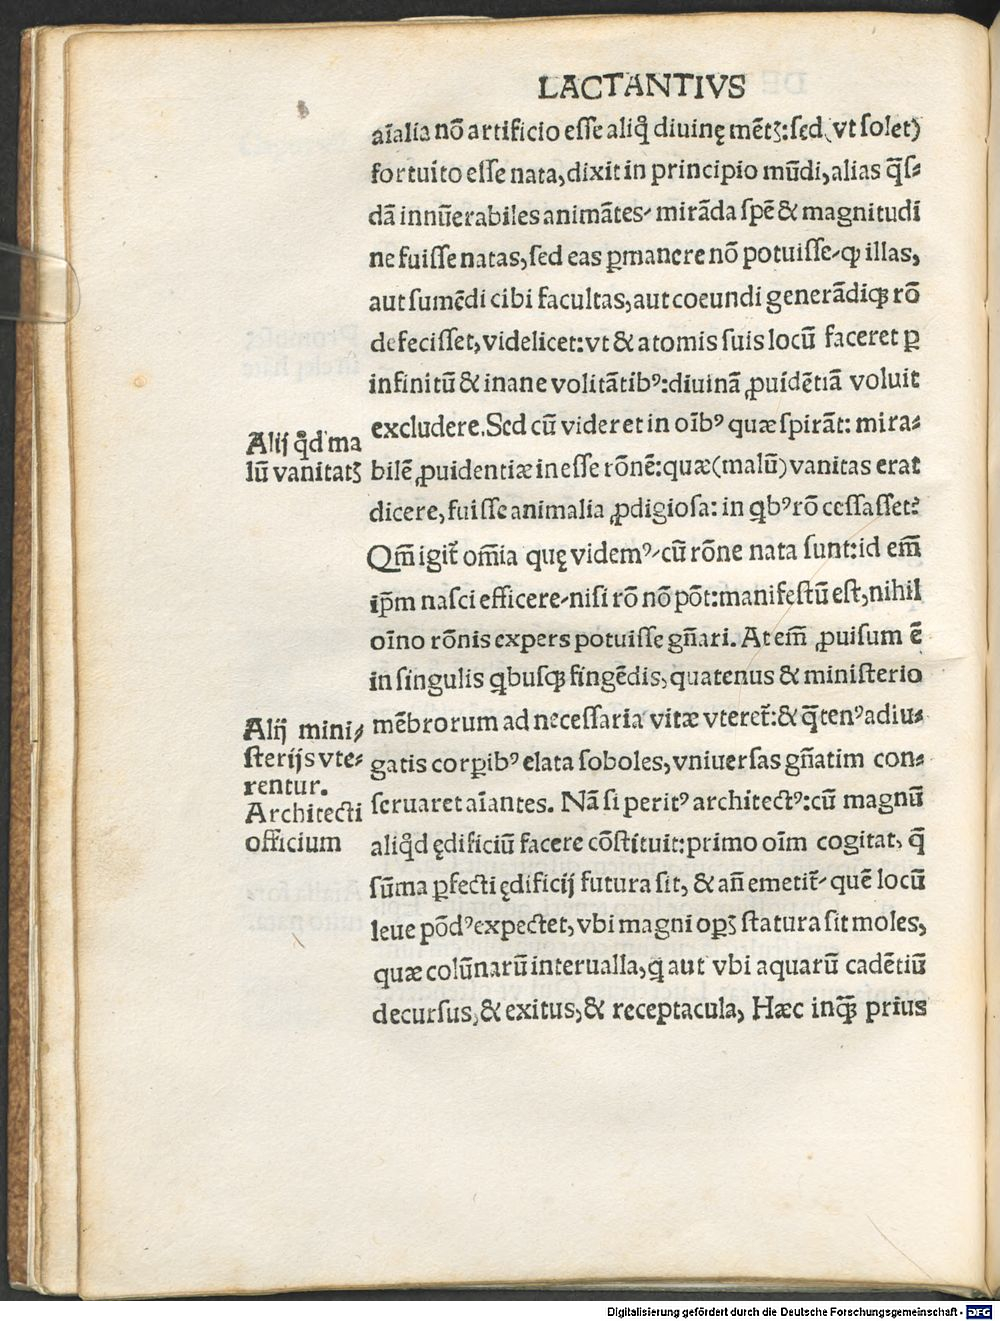 LACTANTIVS
aīalia nō artificio eſſe aliqͥ diuinę mētꝫ:ſed (vt ſolet)
fortuito eſſe nata, dixit in principio mūdi, alias q̄ſ⸗
dā innūerabiles animātes⸗ mirāda ſpē & magnitudi
ne fuiſſe natas, ſed eas ꝑmanere nō potuiſſe⸗ꝙ illas,
aut ſumēdi cibi facultas, aut coeundi generādiqꝫ rō
defeciſſet, videlicet: vt & atomis ſuis locū faceret ꝑ
infinitū & inane volitātibꝰ: diuinā ꝓuidētiā voluit
excludere. Sed cū videret in oībꝰ quæ ſpirāt: mira⸗
Alij qͥd ma
lū vanitatꝫ
bilē ꝓuidentiæ ineſſe rōnē: quæ (malū) vanitas erat
dicere, fuiſſe animalia ꝓdigioſa: in qbꝰ rō ceſſaſſet?
Qm̄ igit̄ om̄ia quę videmꝰ⸗cū rōne nata ſunt: id em̄
ip̄m naſci efficere⸗niſi rō nō pōt: manifeſtū eſt, nihil
oīno rōnis expers potuiſſe gn̄ari. At em̄ ꝓuiſum ē
in ſingulis qbuſqꝫ fingēdis, quatenus & miniſterio
mēbrorum ad neceſſaria vitæ vteret̄: & q̄tenꝰ adiu⸗
Alij mini⸗
ſterijs vte⸗
rentur.
gatis corꝑibꝰ elata ſoboles, vniuerſas gn̄atim con⸗
ſeruaret aīantes. Nā ſi peritꝰ architectꝰ: cū magnū
Architecti
officium
aliqͥd ędificiū facere cōſtituit: primo oīm cogitat, q̄
ſūma ꝑfecti ędificij futura ſit, & an̄ emetit̄⸗ quē locū
leue pōdꝰ expectet, vbi magni opꝫ ſtatura ſit moles,
quæ colūnarū interualla, q aut vbi aquarū cadētiū
decurſus, & exitus, & receptacula, Hæc inqͣ̄ prius
Digitalisierung gefördert durch die Deutsche Forschungsgemeinschaft - DFG